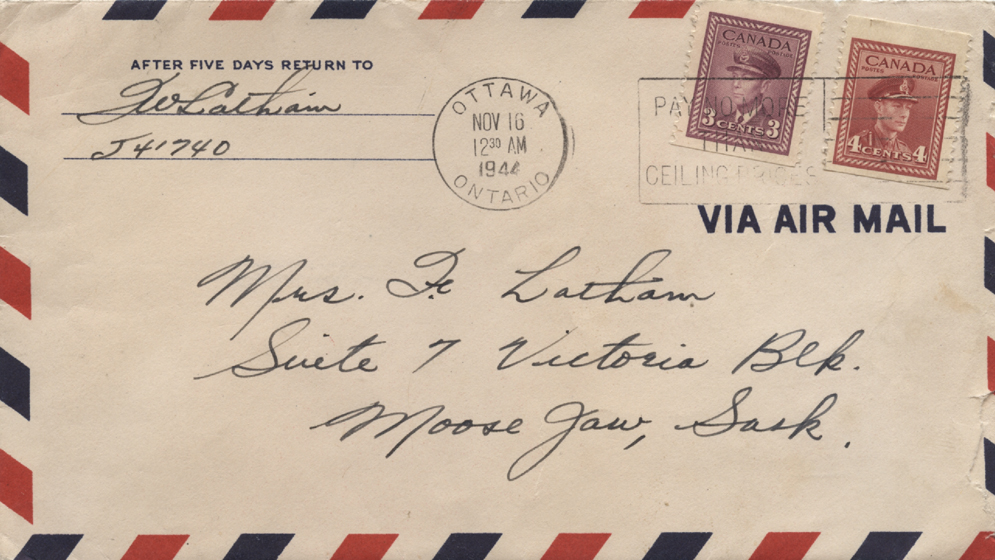 AFTER FIVE DAYS RETURN TO
Latham
J41740
OTTAWA
NOV 16
12³⁰ AM
1944
ONTARIO
PAY NO MORE
THAN
CEILING PRICES
CANADA
POSTES POSTAGE
3 CENTS 3
CANADA
POSTES POSTAGE
4 CENTS 4
VIA AIR MAIL
Mrs. F. Latham
Suite 7 Victoria Blk.
Moose Jaw, Sask.